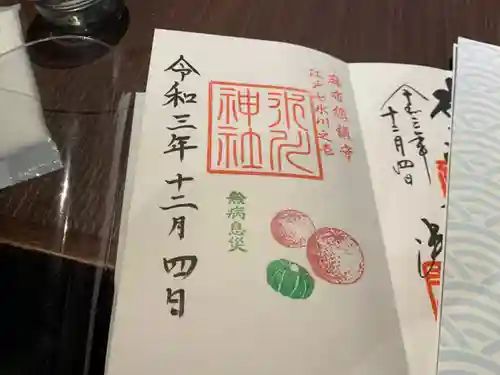 令和三年
十二月四日
江戸七氷川之壱
氷川
神社
無病息災
令和三年十二月四日